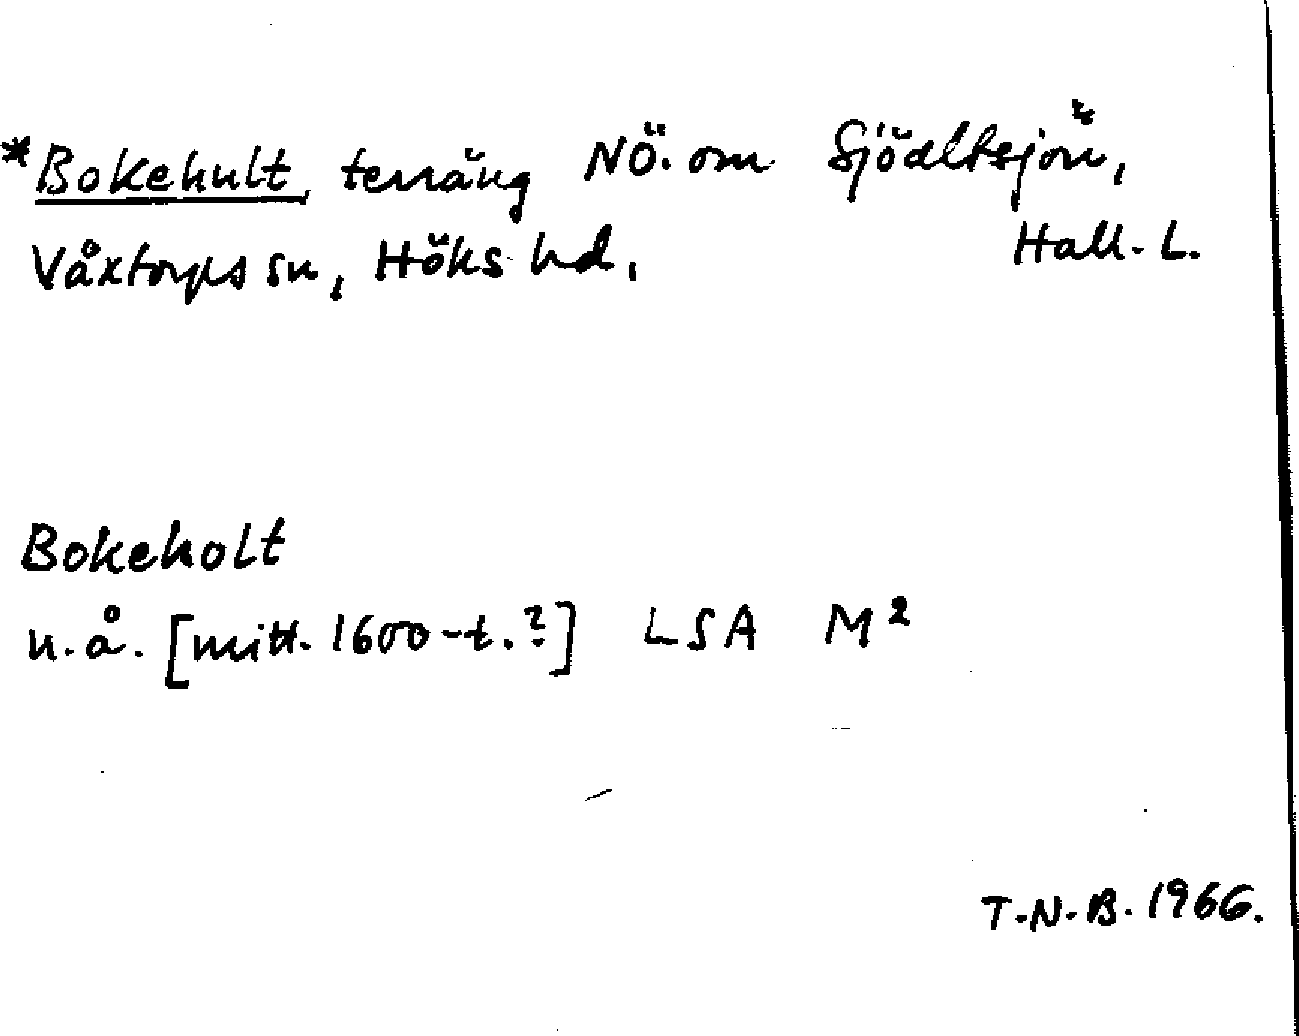 *Bokehult, terräng NÖ. om Sjöaltesjön,
Våxtorps sn, Höks hd, Hall. L.
Bokeholt
u.å. [mitt. 1600-t.?] LSA M²
T.N.B. 1966.